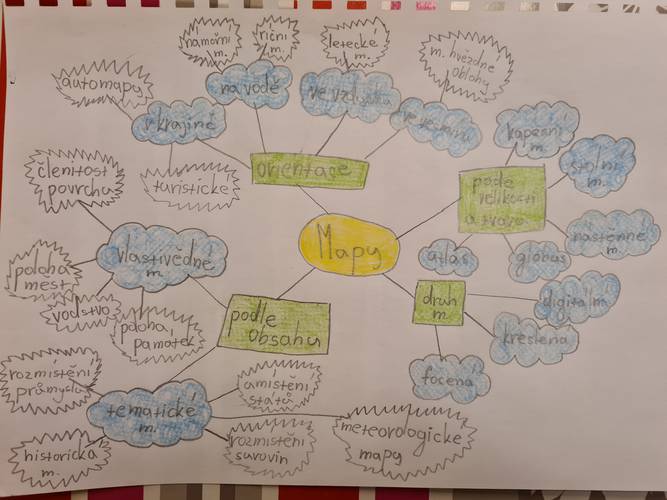 námořní
m.
říční
m.
letecké
m.
m. hvězdné
oblohy
automapy
na vodě
ve vzduchu
ve vesmíru
v krajině
kapesní
m.
orientace
stolní
m.
členitost
povrchu
turistické
podle
velikosti
a tvaru
Mapy
nástěnné
m.
vlastivědné
m.
atlas
globus
poloha
mest
druh
m.
digitální
vodstvo
poloha
památek
podle
obsahu
kreslená
focená
rozmístění
průmyslu
umístění
států
tematické
m.
meteorologické
mapy
historická
m.
rozmístění
surovin